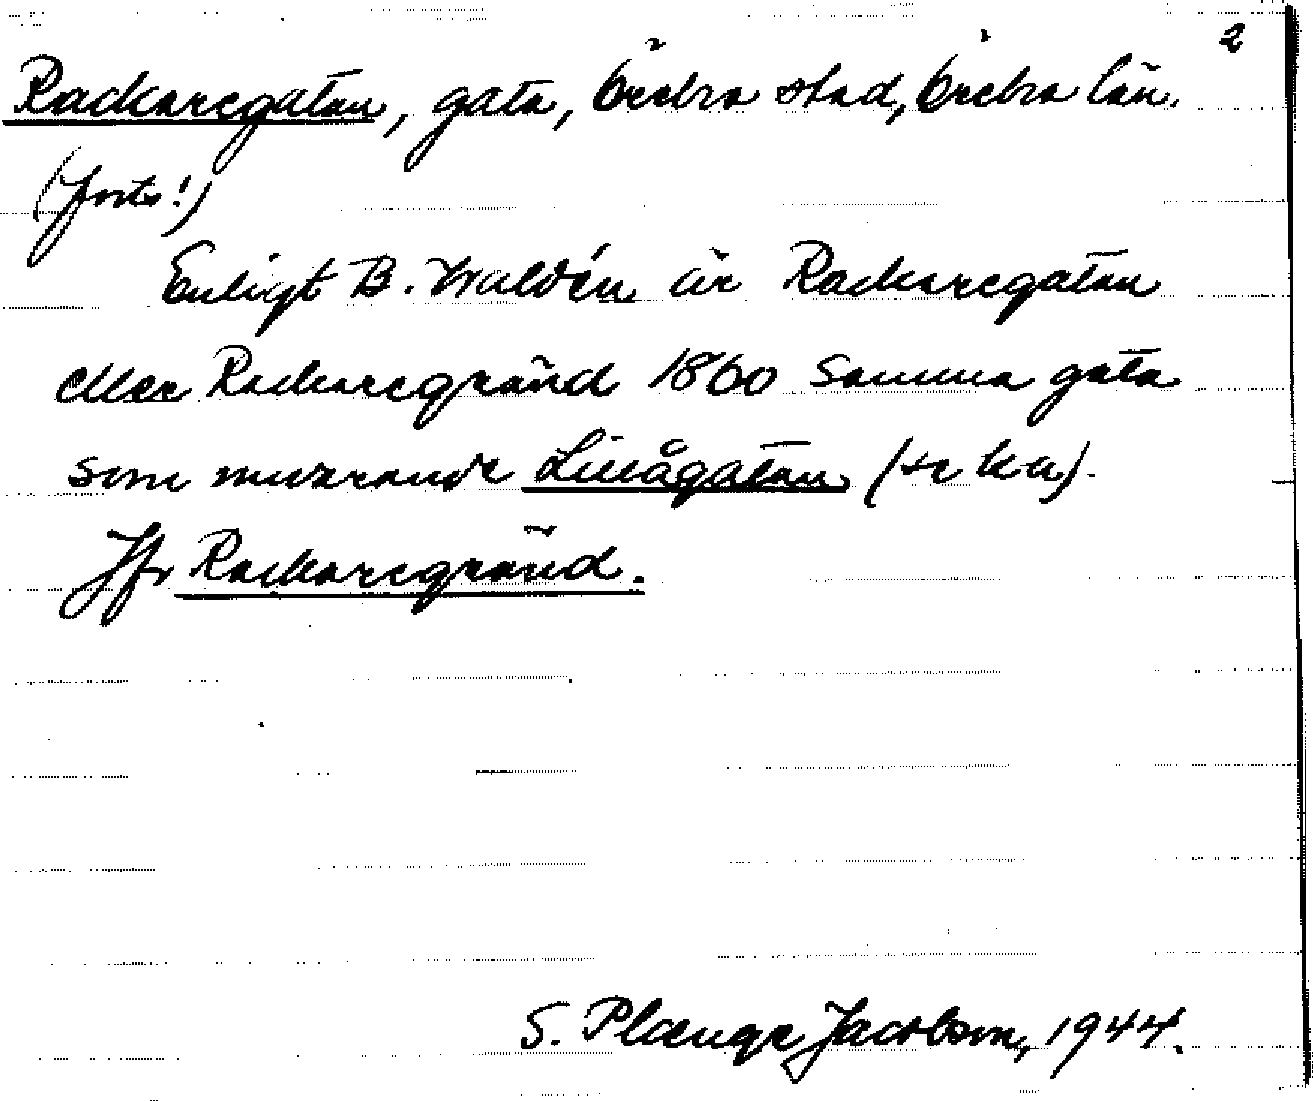 2
Rackaregatan, gata, Örebro stad, Örebro län.
(forts!)
Enligt B. Waldén är Rackaregatan
eller Rackaregränd 1860 samma gata
som nuvarande Lillågatan (se ka).
Jfr Rackaregränd.
S. Plænge Jacobson, 1944.